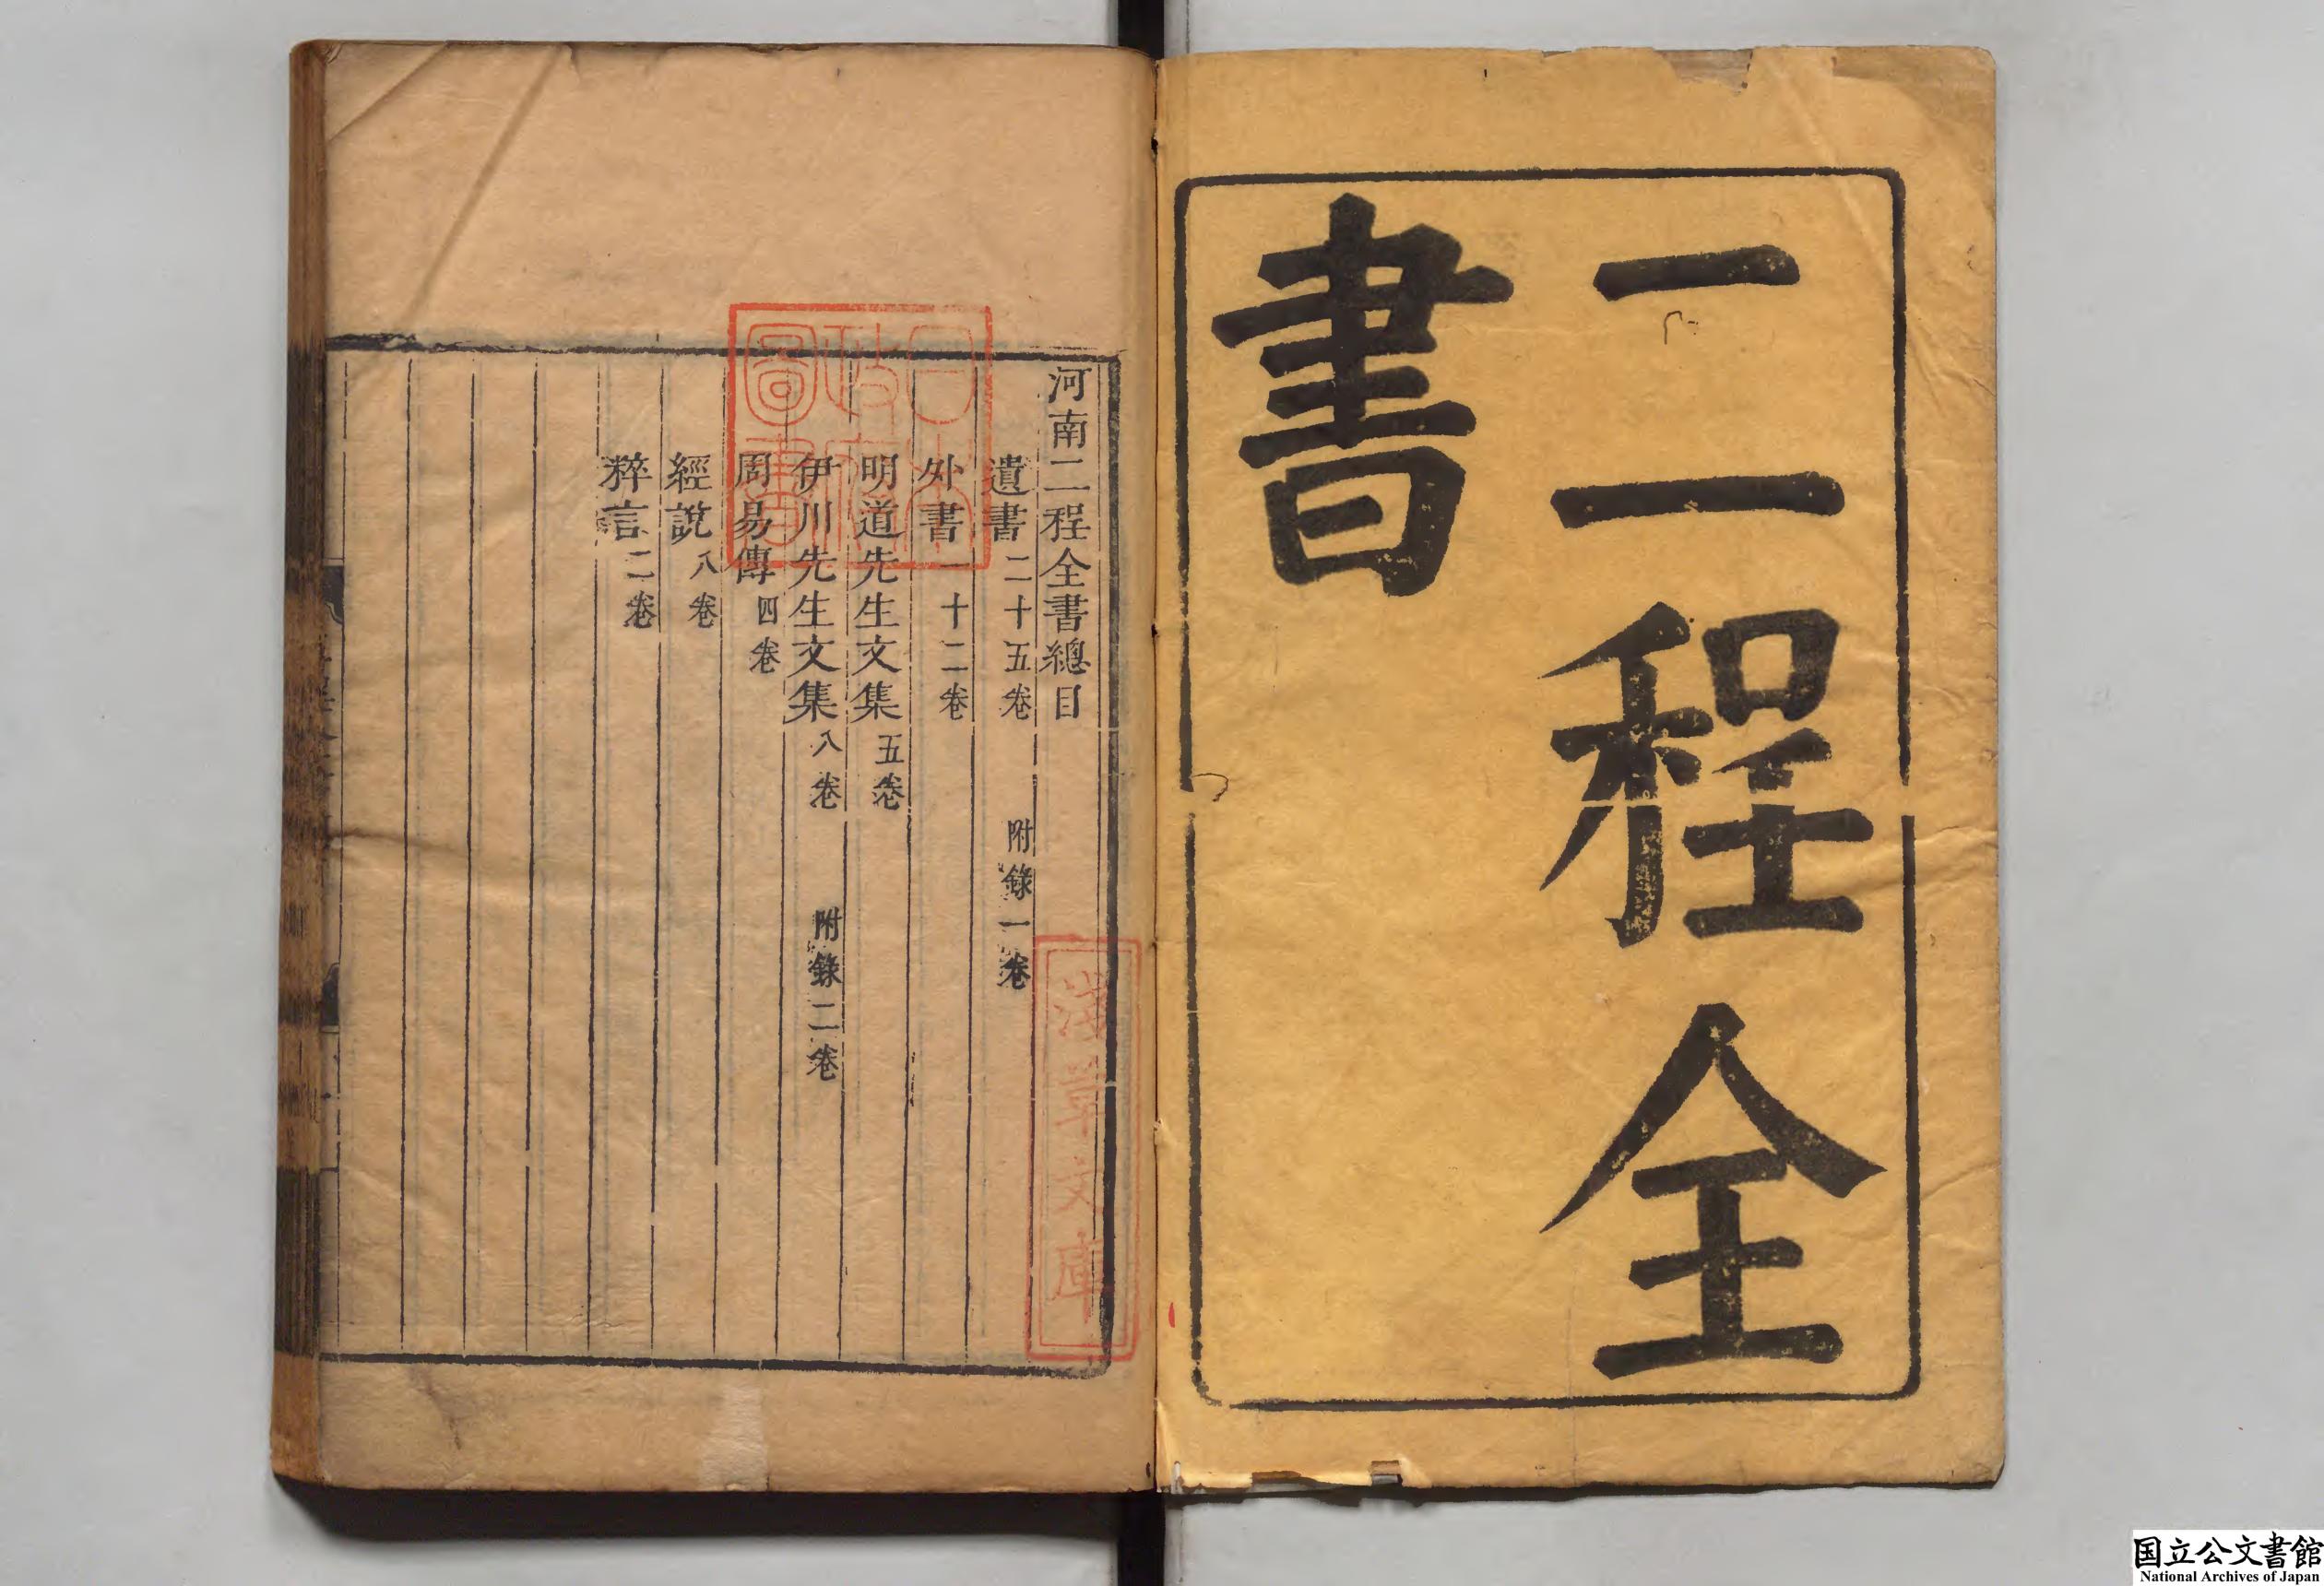 二程全
書
河南二程全書總目
遺書二十五卷 附錄一卷
外書十二卷
明道先生文集五卷
伊川先生文集八卷 附錄二卷
周易傳四卷
經說八卷
粹言二卷
日本
政府
圖書
淺草文庫
国立公文書館
National Archives of Japan